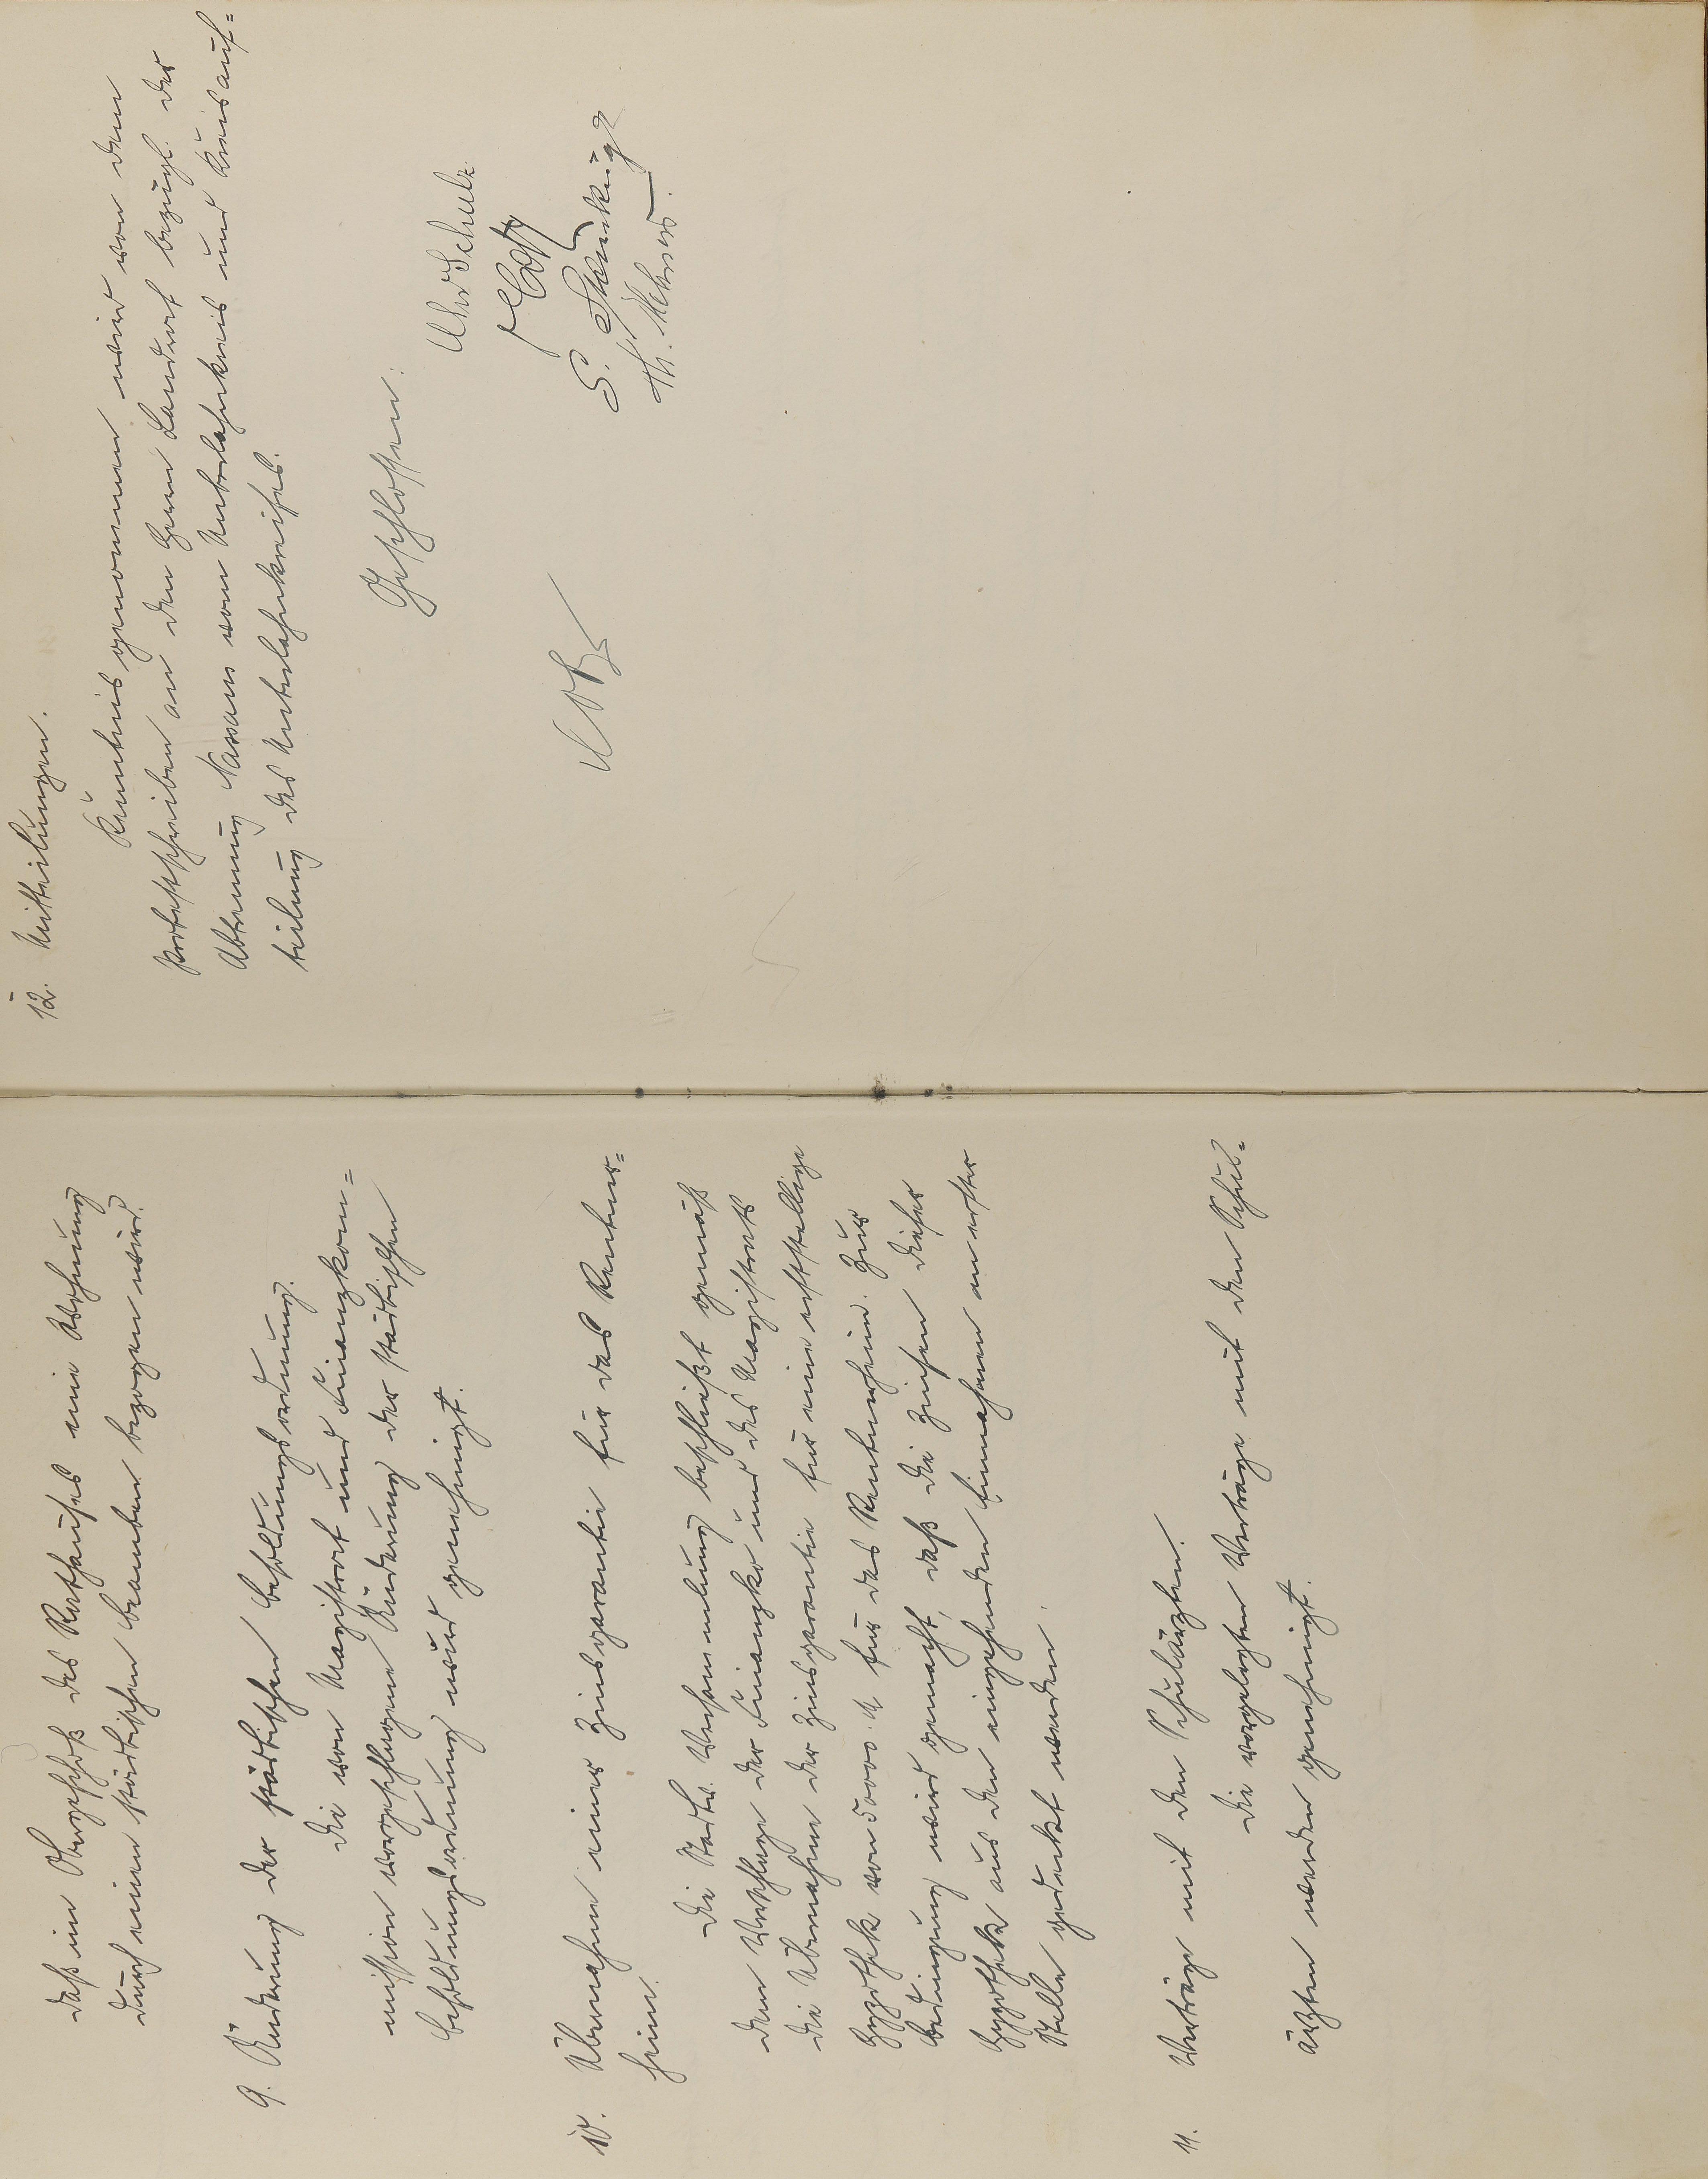 daß im Obergeschoß des Rathauses eine Wohnung
durch einen städtischen Beamten bezogen wird.
9. Änderung der städtischen Besoldungsordnung.
Die von Magistrat und Finanzkom=
mission vorgeschlagene Änderung der städtischen
Besoldungsordnung wird genehmigt.
10. Übernahme einer Zinsgarantie für das Rentner=
heim.
Die Stadtv. Versammlung beschließt gemäß
dem Vorschlage der Finanzko und des Magistrats
die Übernahme der Zinsgarantie für eine erststellige
Hypothek von 5000 M für das Rentnerheim. Zur
Bedingung wird gemacht, daß die Zinsen dieser
Hypothek aus den eingehenden Einnahmen an erster
Stelle gedeckt werden.
11. Verträge mit den Schulärzten.
Die vorgelegten Verträge mit den Schul=
ärzten werden genehmigt.
12. Mitteilungen.
Kenntnis genommen wird von dem
Protestschreiben an den Herrn Landrat bezügl. der
Abtrennung Nassaus vom Unterlahnkreis und Kreisauf=
teilung des Unterlahnkreises.
Geschlossen:
Schulz